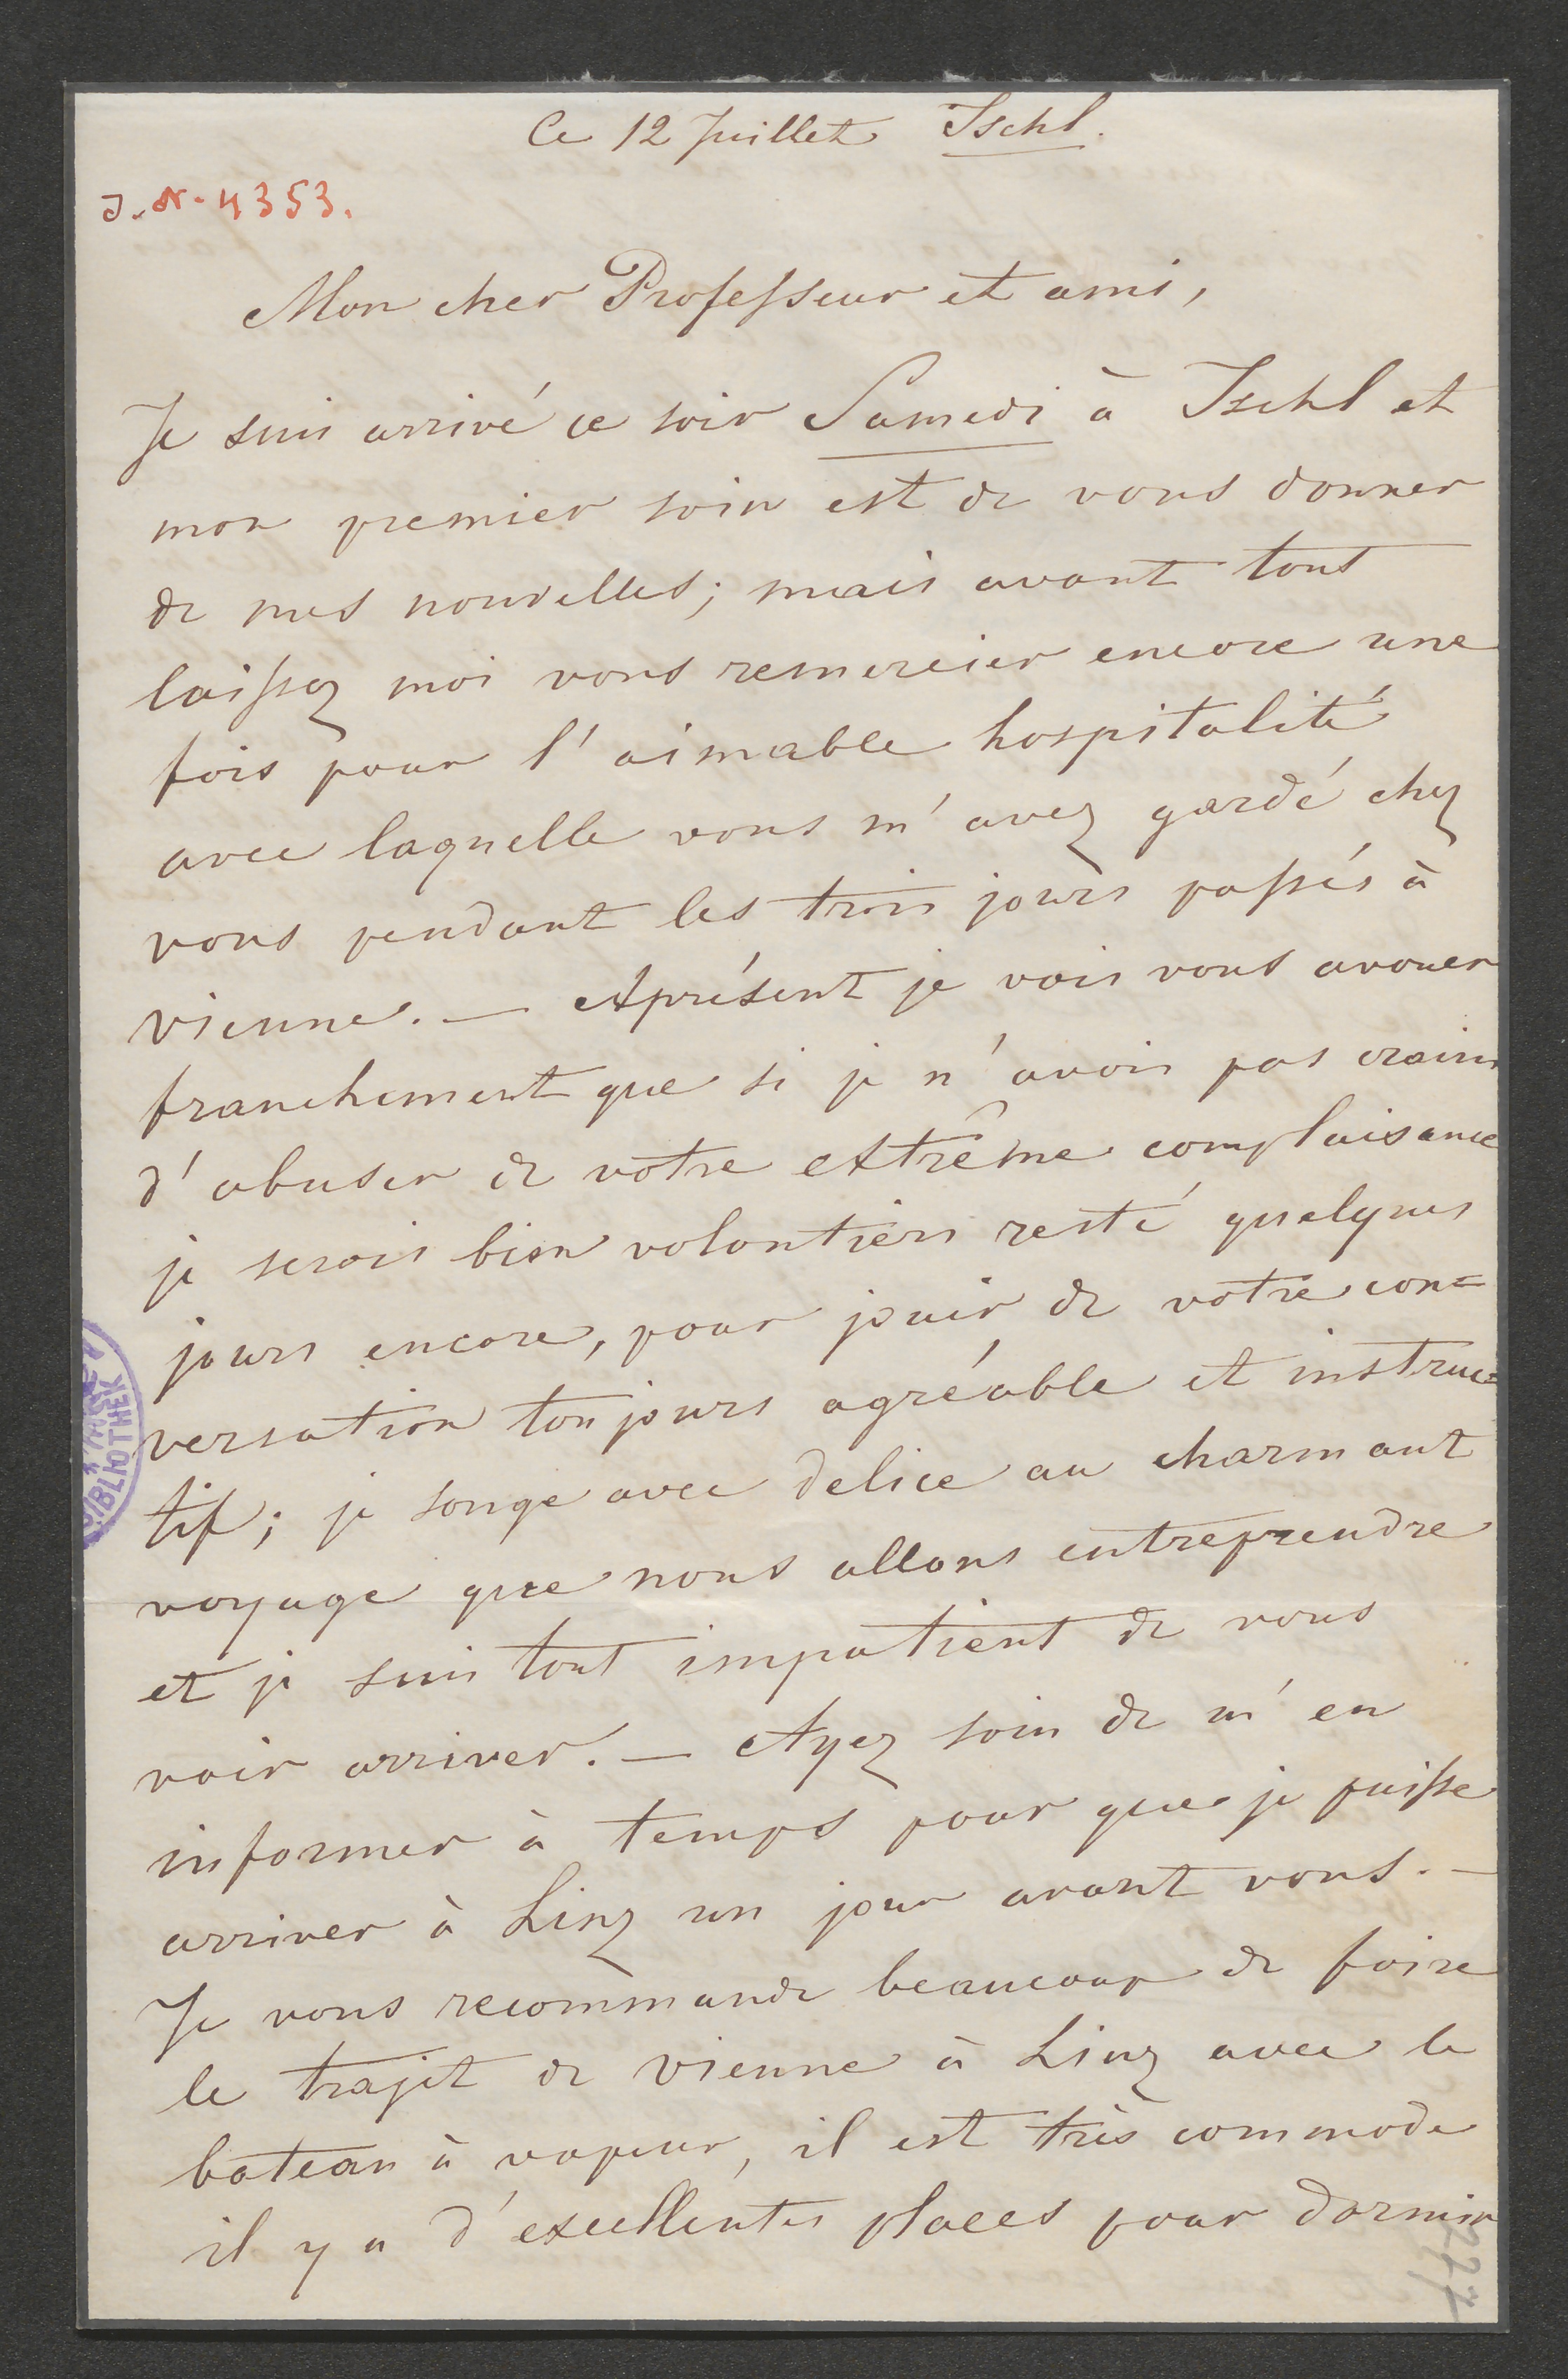 Ce 12 Juillet Ischl.
J.N. 4353.
Mon cher Professeur et ami,
Je suis arrivé ce soir Samedi à Ischl et
mon premier soin est de vous donner
de mes nouvelles; mais avant tout
laissez moi vous remercier encore une
fois pour l'aimable hospitalité
avec laquelle vous m'avez gardé chez
vous pendant les trois jours passés à
Vienne. — Aprésent je vais vous avouer
franchement que si je n'avois pas craint
d'abuser de votre extrême complaisance
je serois bien volontiers resté quelques
jours encore, pour jouir de votre con=
versation toujours agréable et instruc=
tif; je songe avec delice au charmant
voyage que nous allons entreprendre
et je suis tout impatient de vous
voir arriver. — Ayez soin de m'en
informer à temps pour que je puisse
arriver à Linz un jour avant vous. —
Je vous recommande beaucoup de faire
le trajet de Vienne à Linz avec le
bateau à vapeur, il est très commode
il y a d'excellentes places pour dormir
BIBLIOTHEK